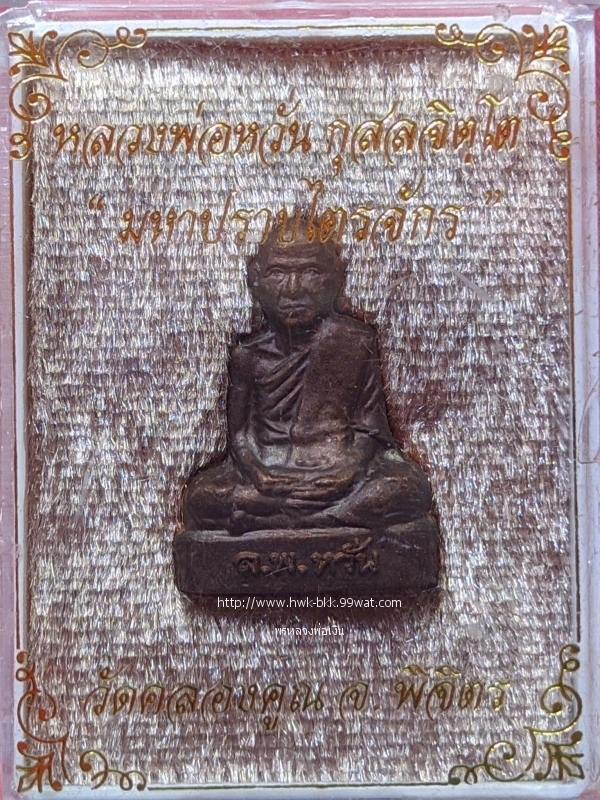 หลวงพ่อหวั่น กุสลจิตฺโต
“ มหาปราบไตรจักร ”
ล.พ.หวั่น
http://www.hwk-bkk.99wat.com
พรหลวงพ่อเงิน
วัดคลองคูณ จ. พิจิตร